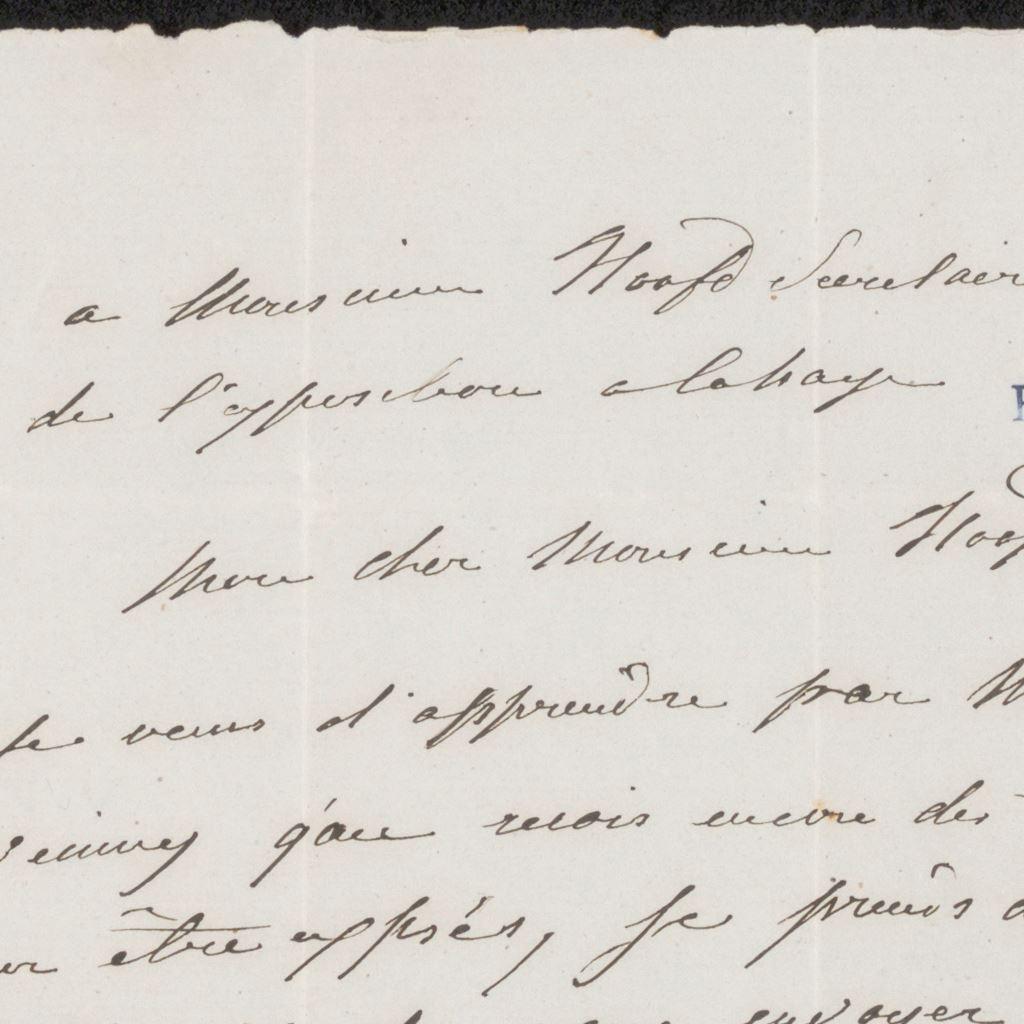 a Monsieur Hoofd Secretair
de l'exposition a la haye
Mon cher Monsieur Hoof
Je viens d'apprendre par M
q'on recois encore des
être exposés, je prends
envoyer